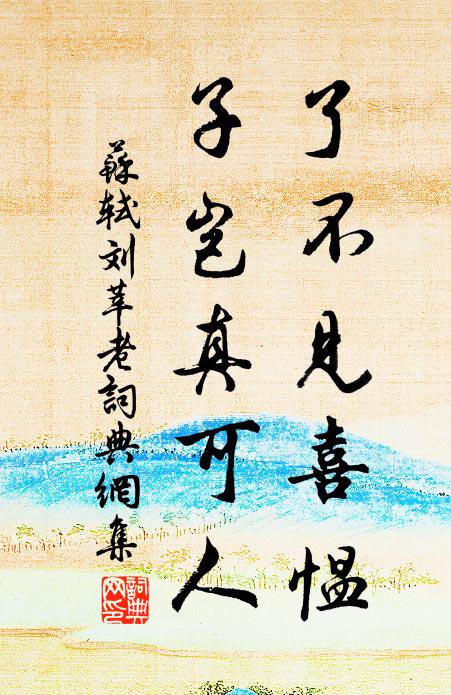 了不見喜愠
子豈真可人
蘇軾刘莘老詞典網集
詞典网印